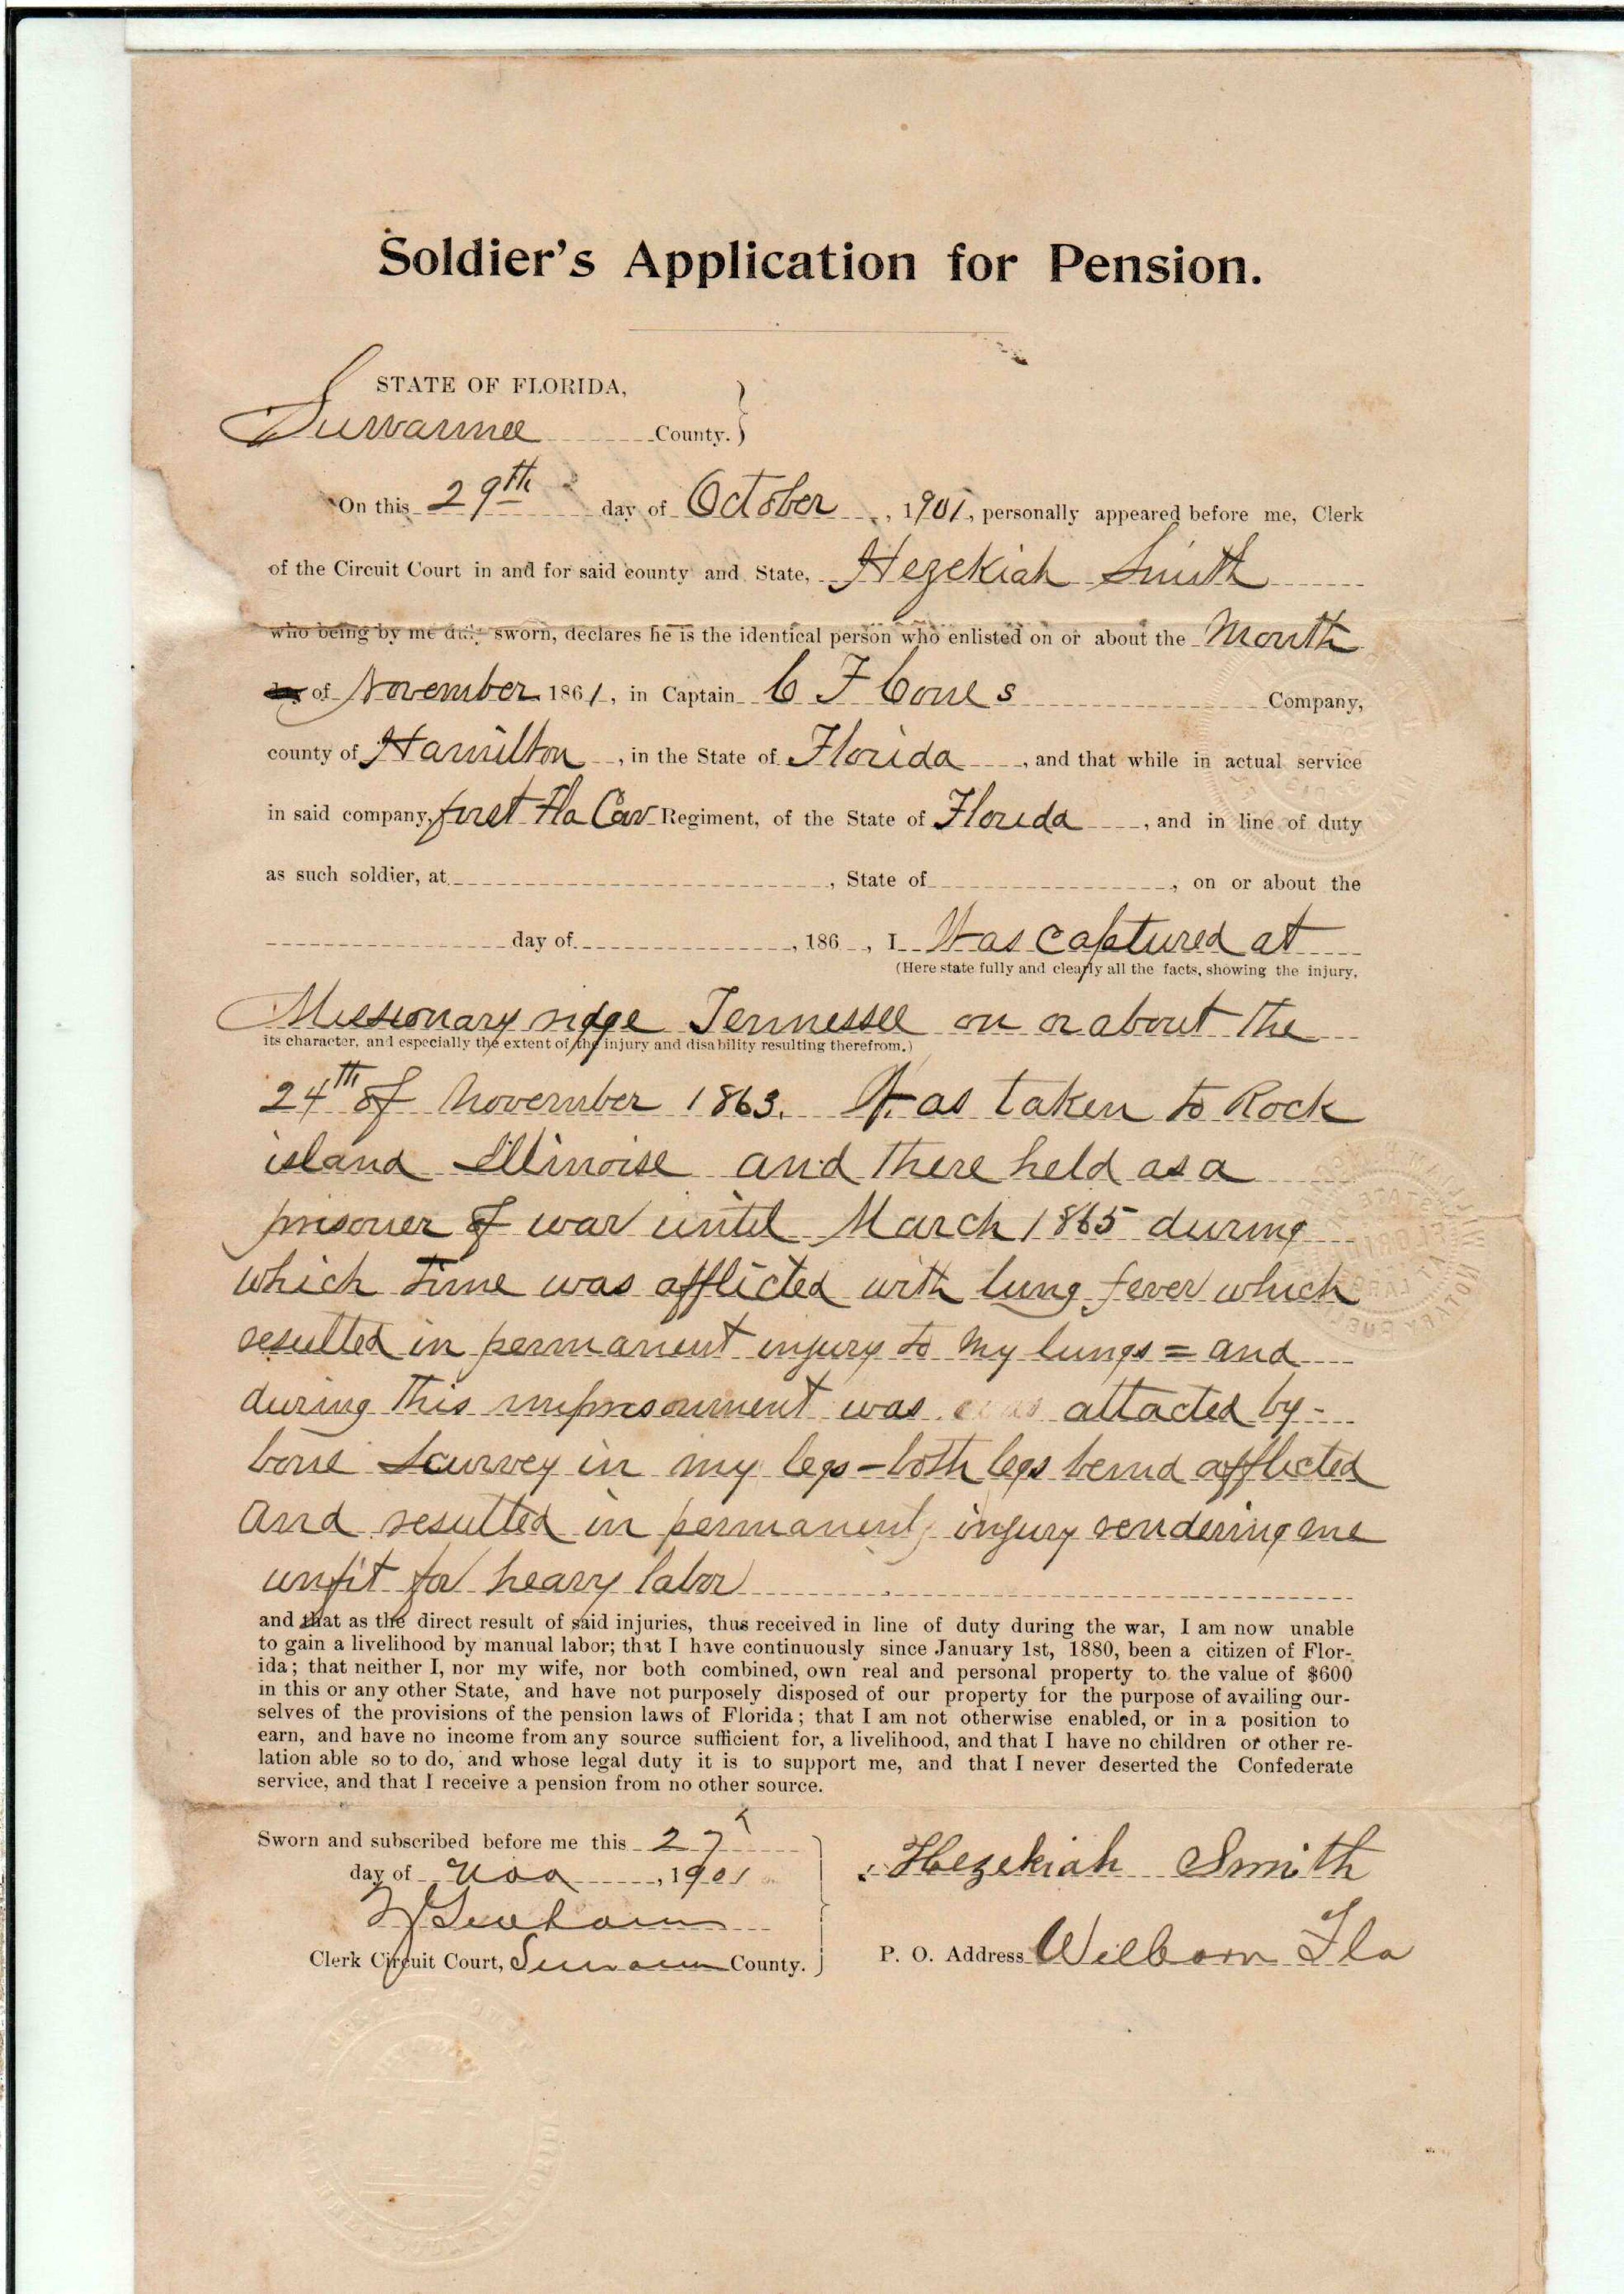 Soldier's Application for Pension.
STATE OF FLORIDA,
Suwannee County.
On this 29th day of October, 1901, personally appeared before me, Clerk
of the Circuit Court in and for said county and State, Hezekiah Smith
who being by me duly sworn, declares he is the identical person who enlisted on or about the Month
day of November 1861, in Captain C F Cone s Company,
county of Hamilton, in the State of Florida, and that while in actual service
in said company, first Fla Cav Regiment, of the State of Florida, and in line of duty
as such soldier, at , State of , on or about the
day of , 186 , I Was captured at
(Here state fully and clearly all the facts, showing the injury,
Missionary ridge Tennessee on or about the
its character, and especially the extent of the injury and disability resulting therefrom.)
24th of November 1863. Was taken to Rock
island Illinoise and there held as a
prisoner of war until March 1865 during
which time was afflicted with lung fever which
resulted in permanent injury to my lungs = and
during this imprisonment was attacted by -
bone scurvey in my legs - both legs beind afflicted
and resulted in permanent injury rendering me
unfit for heavy labor
and that as the direct result of said injuries, thus received in line of duty during the war, I am now unable
to gain a livelihood by manual labor; that I have continuously since January 1st, 1880, been a citizen of Flor-
ida; that neither I, nor my wife, nor both combined, own real and personal property to the value of $600
in this or any other State, and have not purposely disposed of our property for the purpose of availing our-
selves of the provisions of the pension laws of Florida; that I am not otherwise enabled, or in a position to
earn, and have no income from any source sufficient for, a livelihood, and that I have no children or other re-
lation able so to do, and whose legal duty it is to support me, and that I never deserted the Confederate
service, and that I receive a pension from no other source.
Sworn and subscribed before me this 27
day of Nov, 1901
Clerk Circuit Court, Suwannee County.
Hezekiah Smith
P. O. Address Wilborn Fla